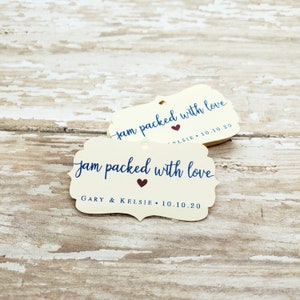 jam packed with love
Kelsie • 10.10.20
jam packed with love
Gary & Kelsie • 10.10.20